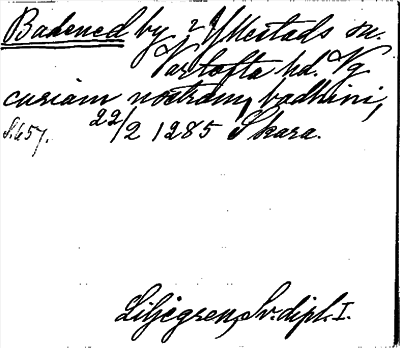 Badened by 2 Yllestads sn.
Vartofta hd. Vg
curiam nostram, badhini,
S. 657. 22/2 1285 Skara.
Liljegren, Sv. dipl. I.